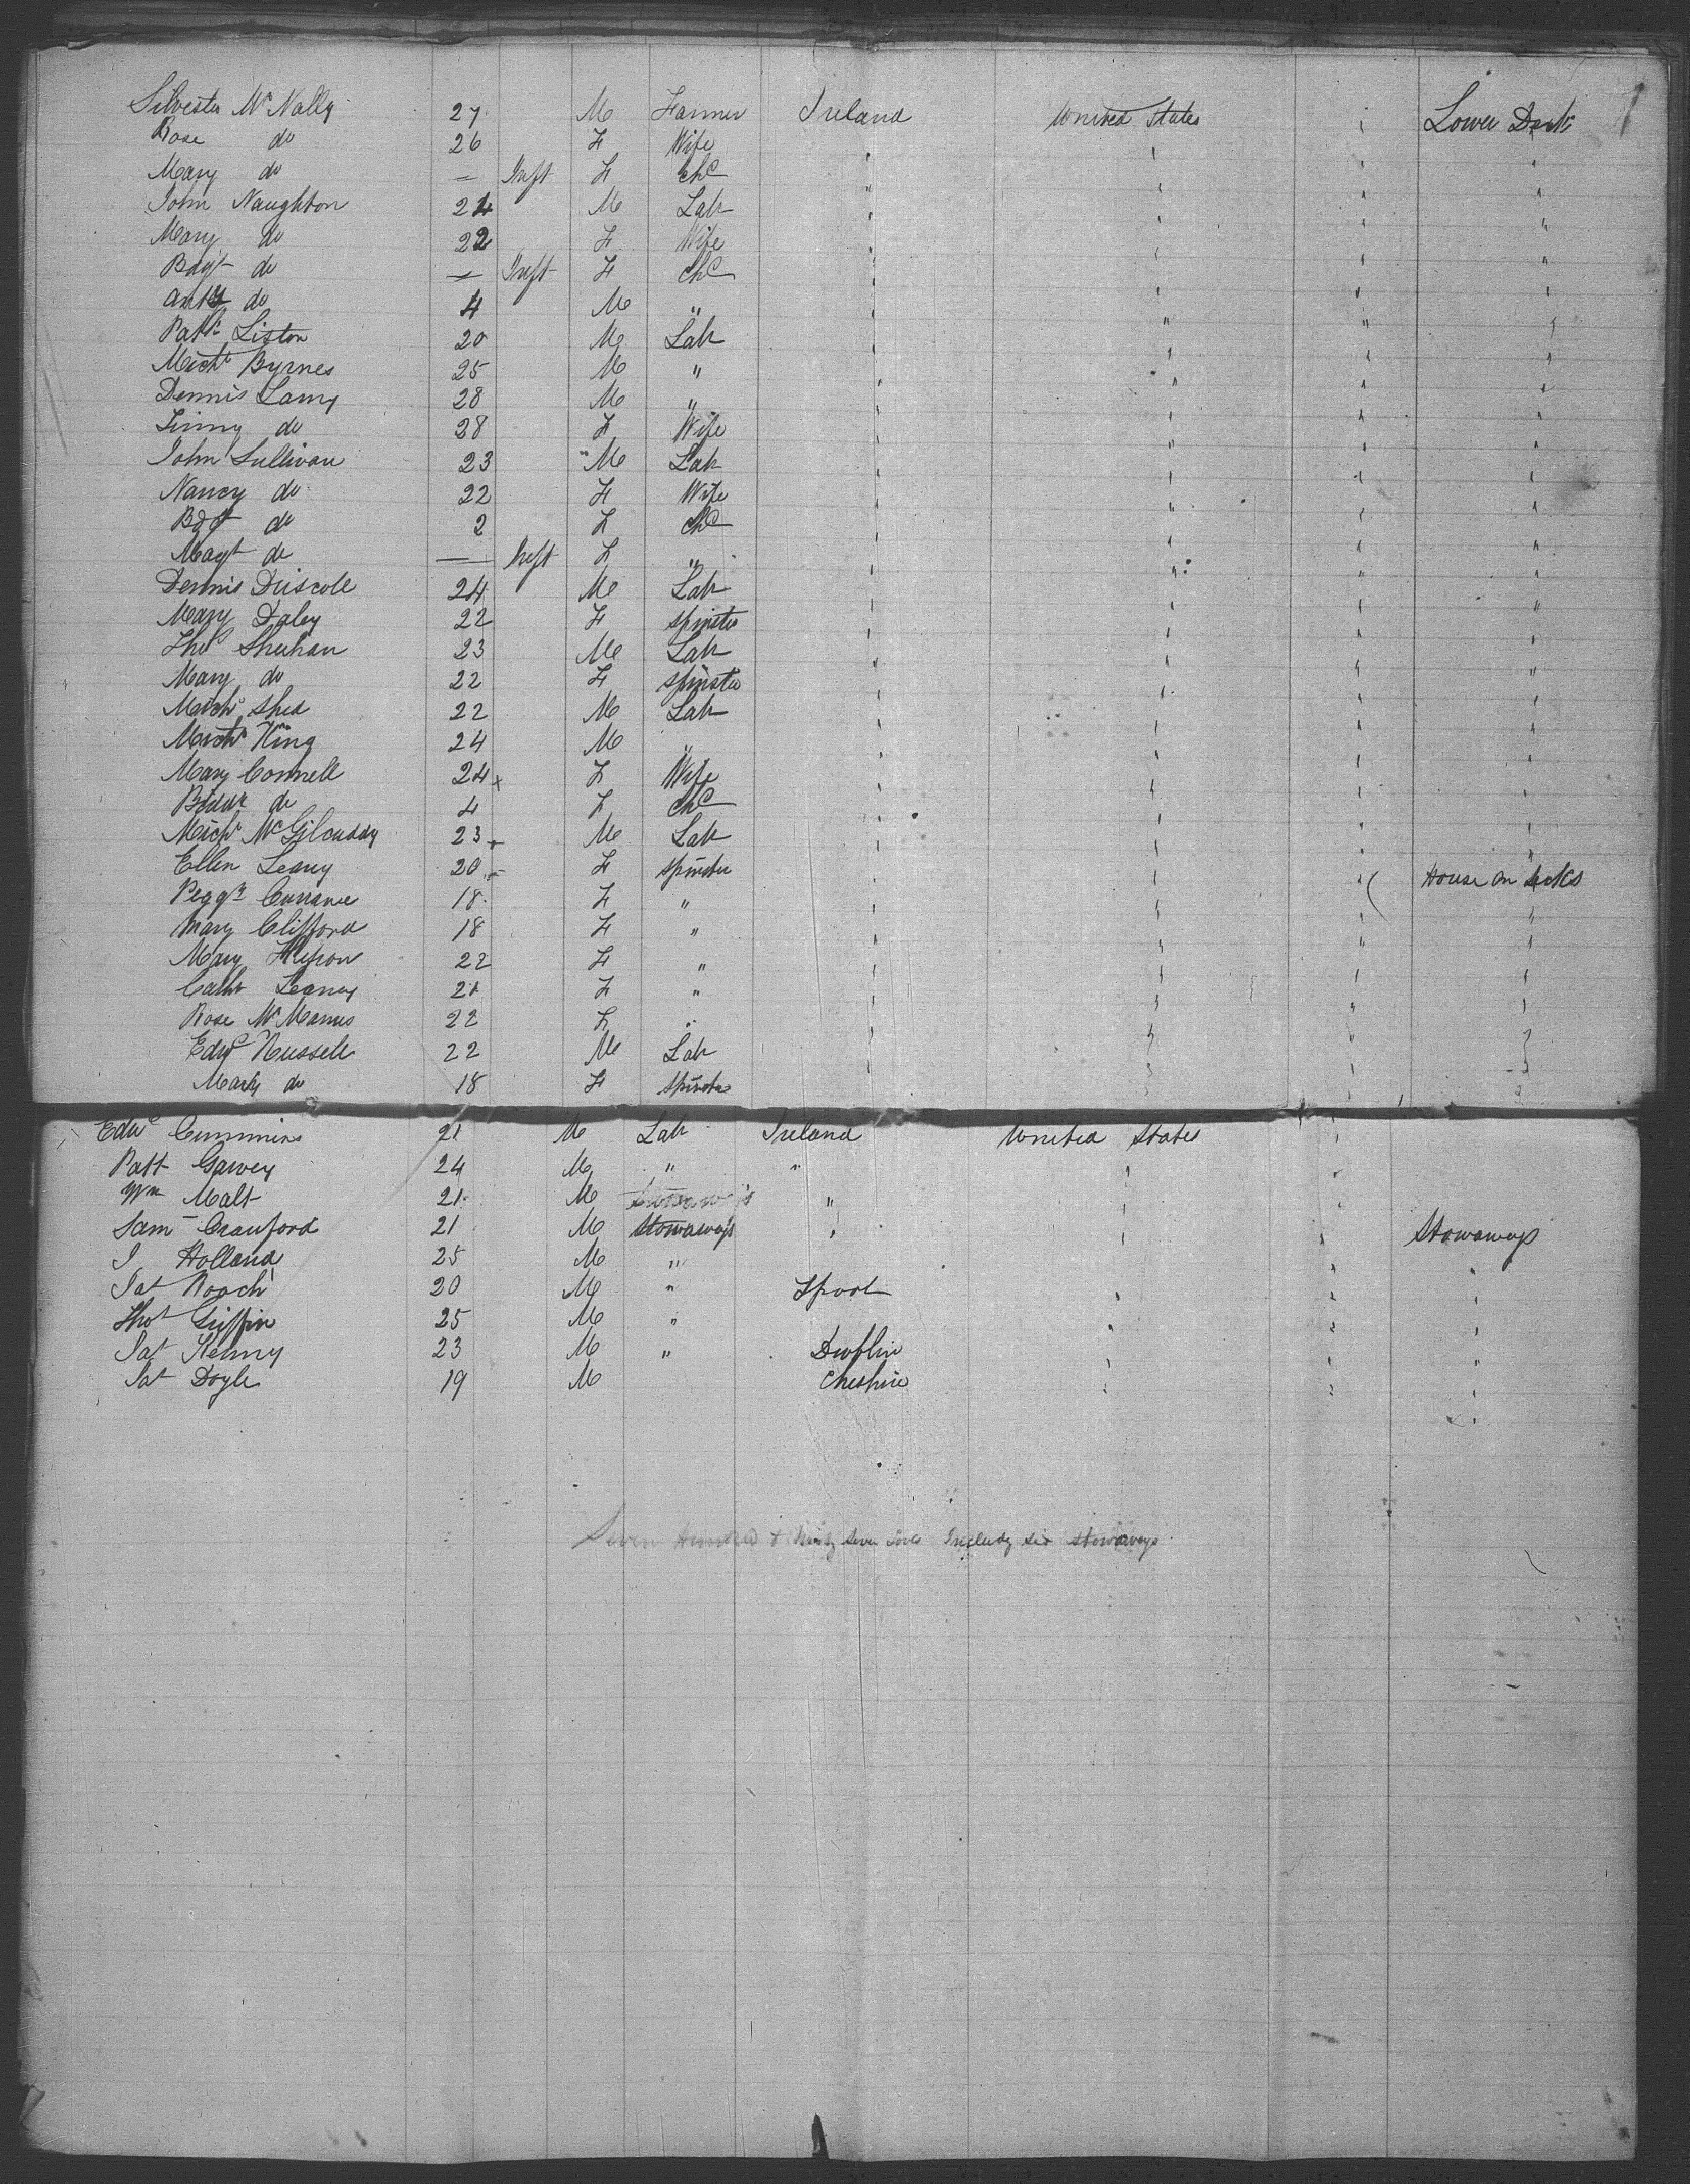 Silvester McNally 27 M Farmer Ireland United States Lower Deck
Rose do 26 F Wife " " " "
Mary do — Inft F Chd " " " "
John Naughton 24 M Lab " " " "
Mary do 22 F Wife " " " "
Bdgt do — Inft F Chd " " " "
Anty do 4 M " " " " "
Patk Liston 20 M Lab " " " "
Michl Byrnes 25 M " " " " "
Dennis 28 M " " " " "
do 28 F Wife " " " "
John Sullivan 23 M Lab " " " "
Nancy do 22 F Wife " " " "
Bdgt do 2 F Chd " " " "
Magt do — Inft F " " " " "
Dennis Driscoll 24 M Lab " " " "
Mary Daley 22 F Spinster " " " "
Thos Sheehan 23 M Lab " " " "
Mary do 22 F Spinster " " " "
Michl Shea 22 M Lab " " " "
Michl King 24 M " " " " "
Mary Connell 24 F Wife " " " "
do 4 F Chd " " " "
Michl McGilcuddy 23 M Lab " " " "
Ellen Leary 20 F Spinster " " " House on Decks
Peggy 18 F " " " " "
Mary Clifford 18 F " " " " "
Mary 22 F " " " " "
Cathe Leary 21 F " " " " "
Rose McManus 22 F " " " " "
Edwd Russell 22 M Lab " " " "
Mary do 18 F Spinster " " " "
Edwd Cummins 21 M Lab Ireland United States "
Patt Garvey 24 M " " " "
Wm Malt 21 M " " "
Saml Crawford 21 M Stowaways " " " Stowaways
J Holland 25 M " " "
Pat Roach 20 M " Lpool " " "
Thos Griffin 25 M " " " "
Pat Kenny 23 M " Dublin " " "
Pat Doyle 19 M Cheshire " " "
Seven Hundred & Ninty Seven Souls Includg six Stowaways